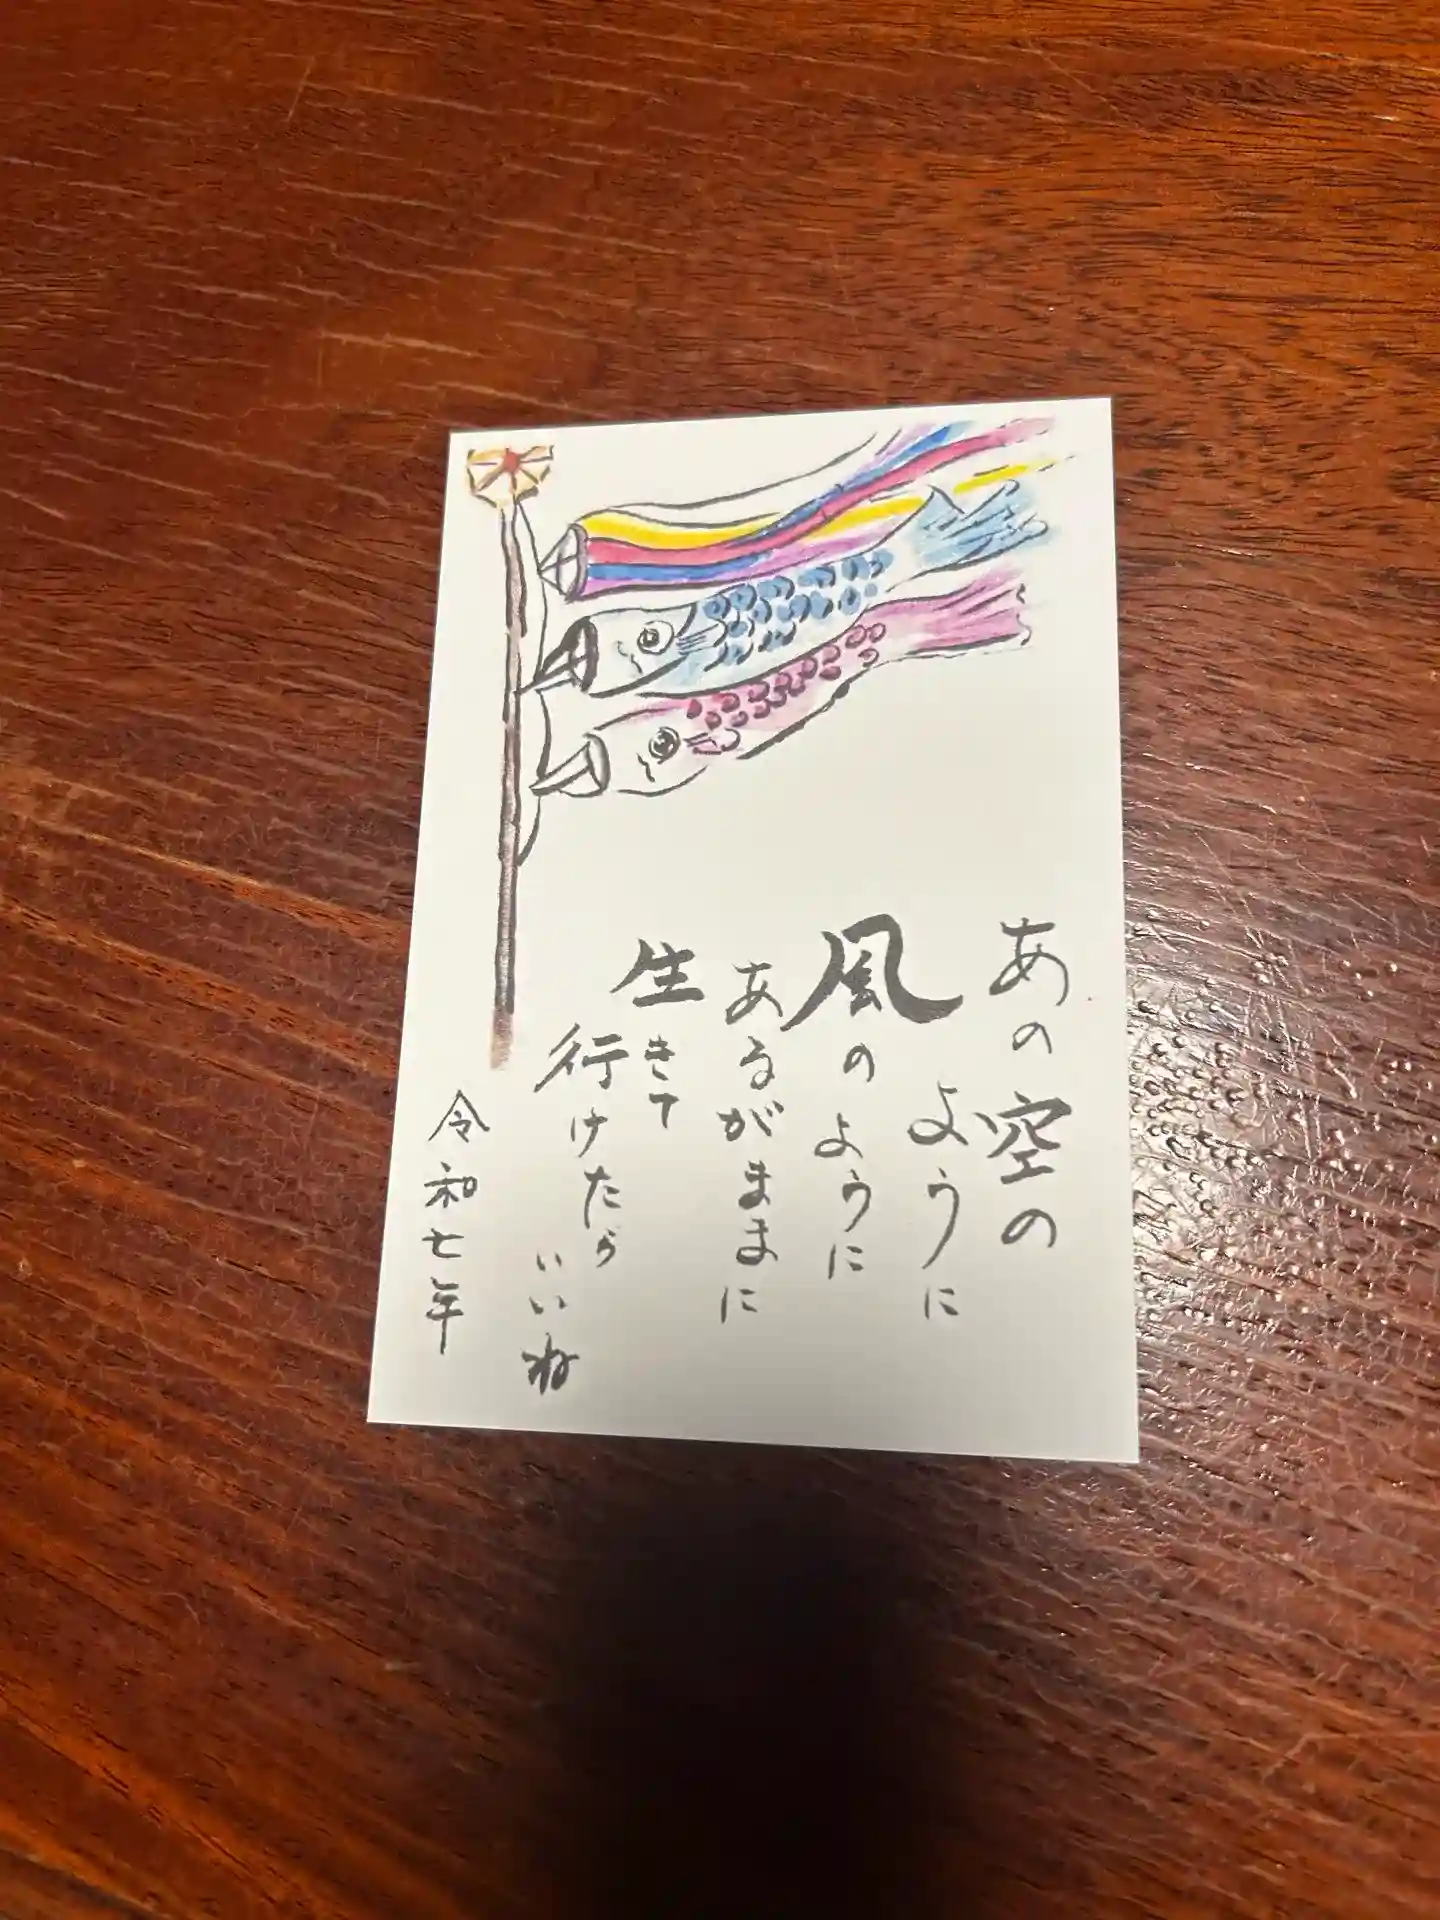 あの空の
ように
風のように
あるがままに
生きて
行けたら
いいね
令和七年